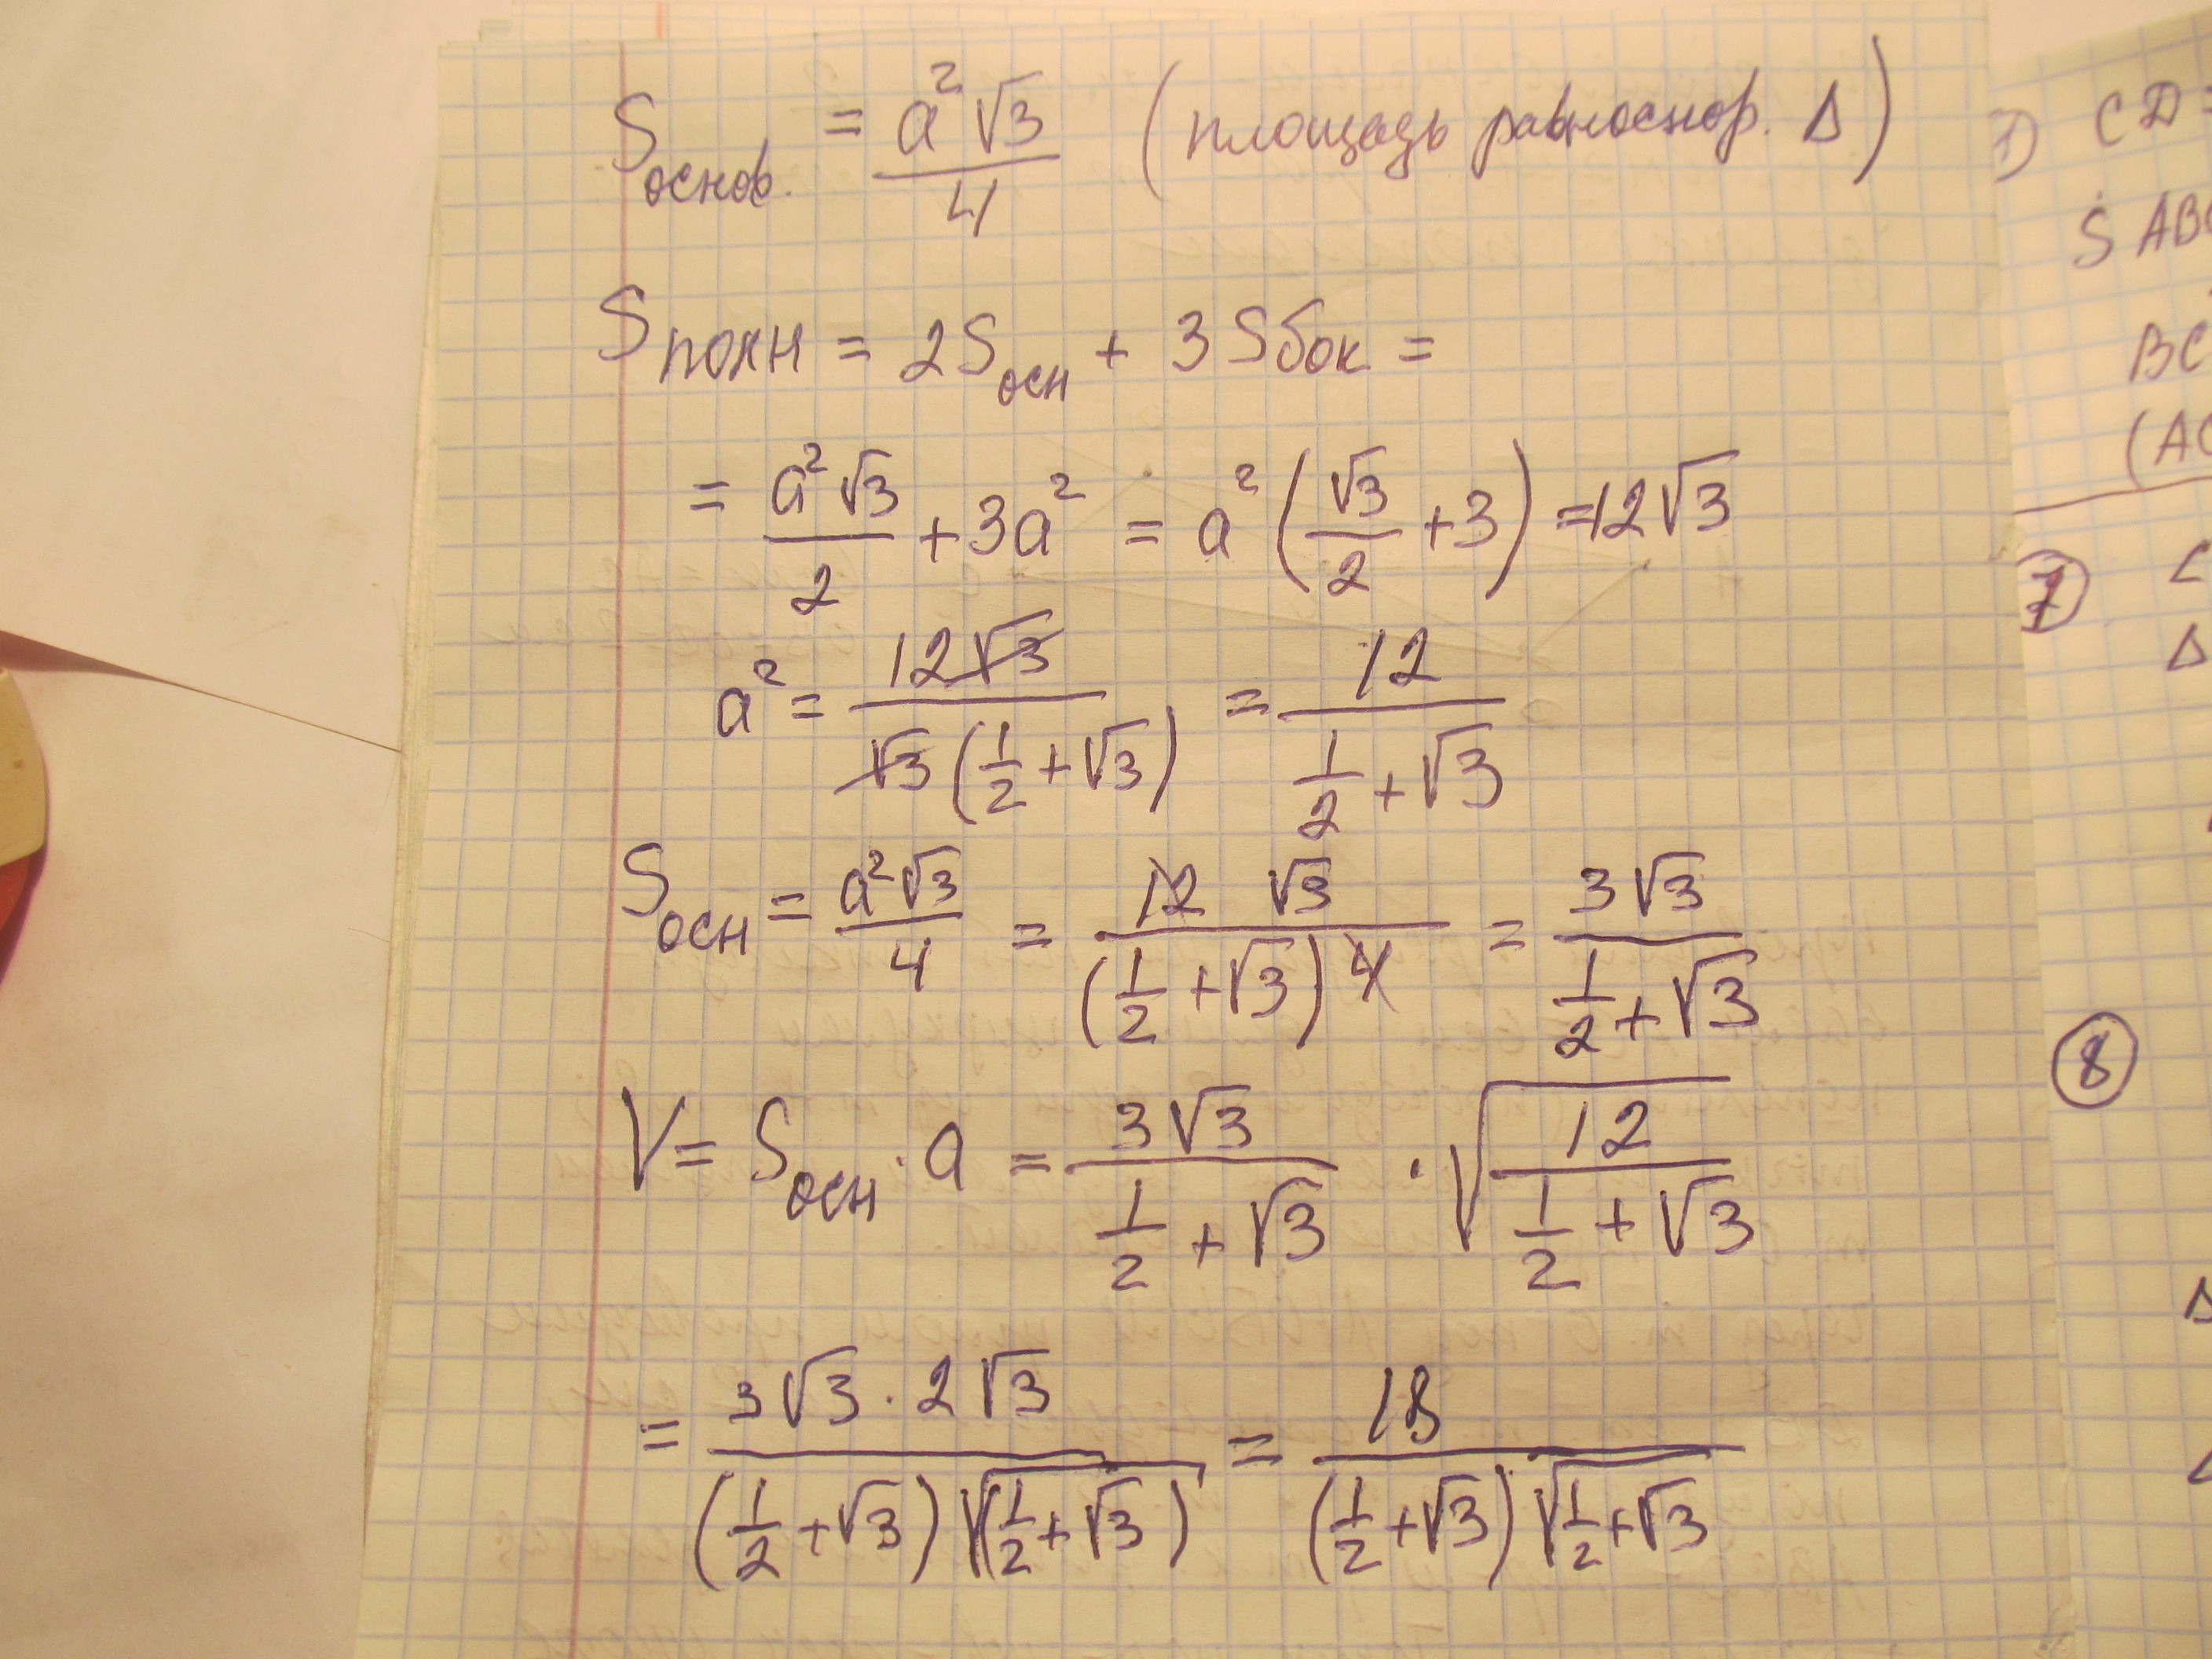 Sоснов. = a²√3/4 (площадь равностор. Δ)
Sполн = 2Sосн + 3Sбок =
= a²√3/2 + 3a² = a²(√3/2 + 3) = 12√3
a² = 12√3/√3(1/2 + √3) = 12/1/2 + √3
Sосн = a²√3/4 = 12 √3/(1/2 + √3) 4 = 3√3/1/2 + √3
V = Sосн · a = 3√3/1/2 + √3 · √12/1/2 + √3
= 3√3 · 2√3/(1/2 + √3)√(1/2 + √3) = 18/(1/2 + √3)√1/2 + √3
CD =
S ABC
BC
(AC
7
8